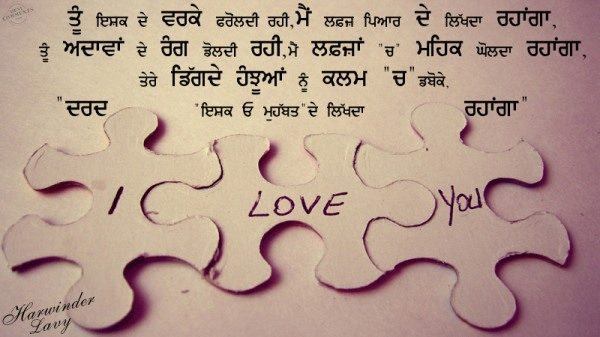 ਤੂੰ ਇਸ਼ਕ ਦੇ ਵਰਕੇ ਫਰੋਲਦੀ ਰਹੀ,ਮੈਂ ਲਫਜ਼ ਪਿਆਰ ਦੇ ਲਿੱਖਦਾ ਰਹਾਂਗਾ,
ਤੂੰ ਅਦਾਵਾਂ ਦੇ ਰੰਗ ਡੋਲਦੀ ਰਹੀ,ਮੈ ਲਫਜ਼ਾਂ "ਚ" ਮਹਿਕ ਘੋਲਦਾ ਰਹਾਂਗਾ,
ਤੇਰੇ ਡਿੱਗਦੇ ਹੰਝੂਆਂ ਨੂੰ ਕਲਮ "ਚ"ਡਬੋਕੇ,
"ਦਰਦ "ਇਸ਼ਕ ਓ ਮੁਹੱਬਤ"ਦੇ ਲਿੱਖਦਾ ਰਹਾਂਗਾ"
I LOVE YOU
Harwinder
Lavy